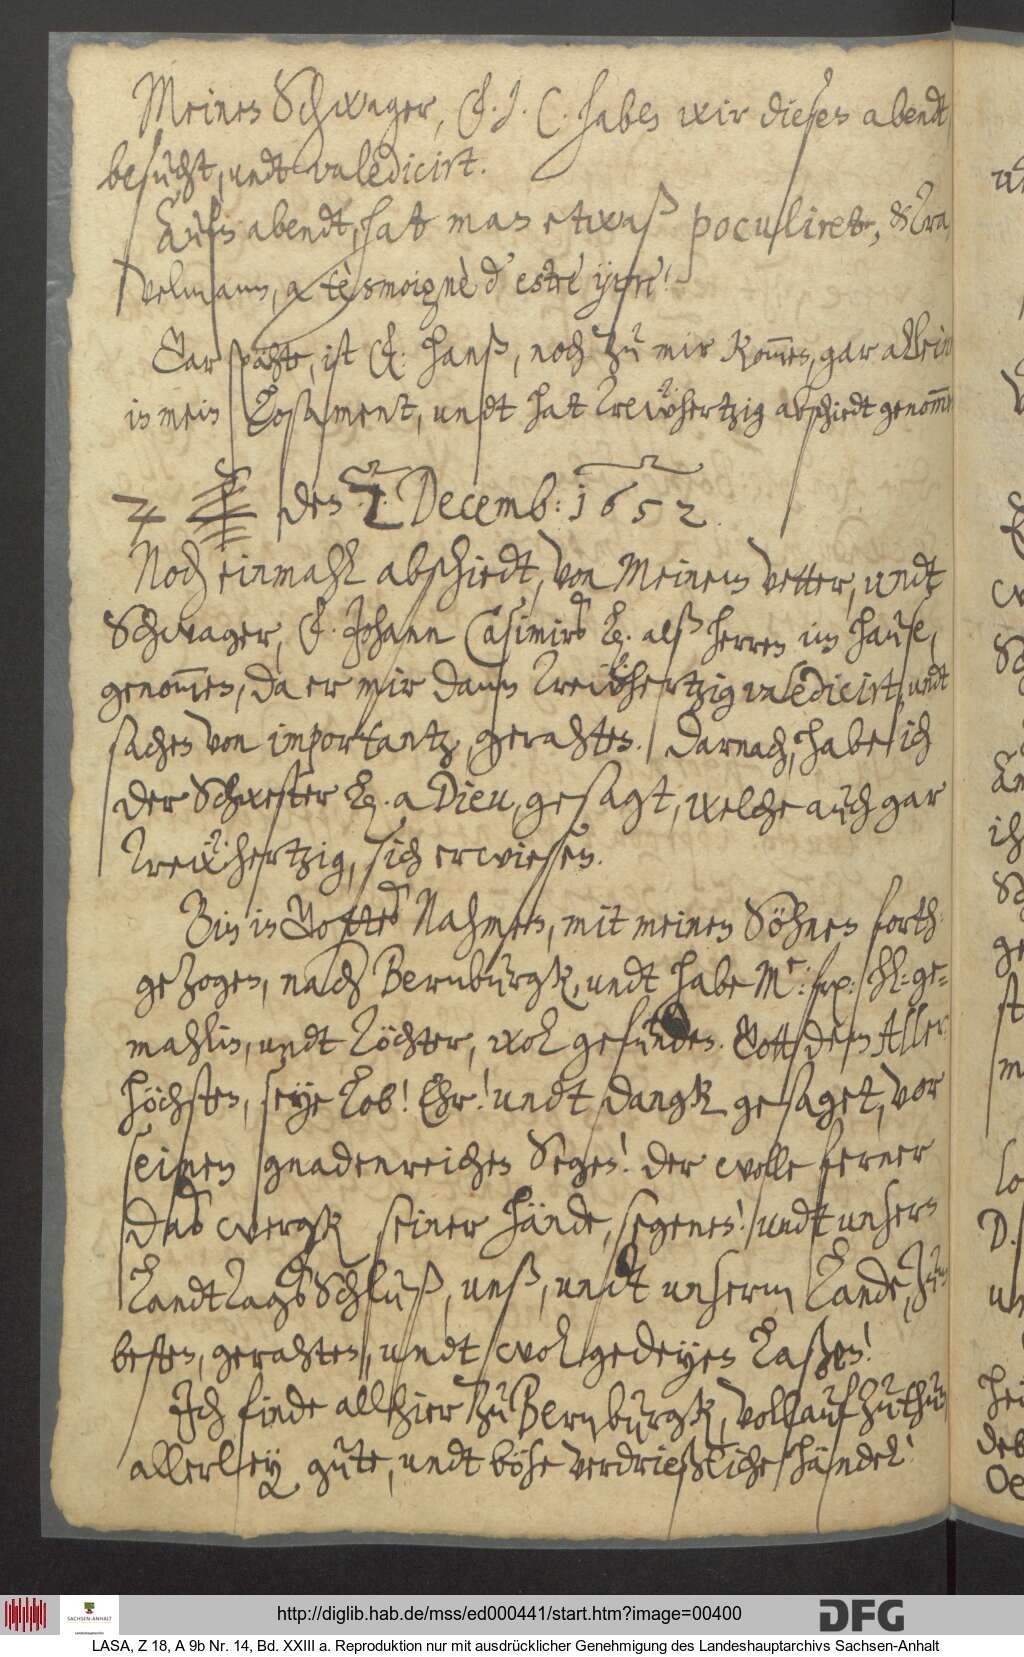 Meinen Schwager, F. J. C. haben wir diesen abendt
besucht, undt valedicirt.
Aufn abendt, hat man etwaß poculiret, & Tra
velmann, a tèsmoignè d'estré yvre!
Gar spähte, ist F. Hanß, noch zu mir kom̅en, gar allein
in mein Losament, undt hat Trewhertzig abschiedt genom̅en
den 2. Decemb: 1652.
Noch einmahl abschiedt, von Meinem Vetter, undt
Schwager, F. Johann Casimirs L. alß herren im hause,
genom̅en, da er mir dann Trewhertzig valedicirt, undt
sachen von importantz, gerahten. Darnach, habe ich
der Schwester L. a Dieu, gesagt, welche auch gar
Trewhertzig, sich erwiesen.
Bin in Gottes Nahmen, mit meinen Söhnen forth-
gezogen, nach Bernburgk, undt habe Me: frl: hl: ge-
mahlin, undt Töchter, wol gefunden. Gott dem Aller
höchsten, seye Lob! Ehr! undt dangk gesaget, vor
seinen gnadenreichen Segen! der wolle ferner
das wergk seiner hände, segenen! undt unsern
LandtTagsSchluß, unß, undt unserm Lande, zum
besten, gerahten, undt wol gedeyen Laßen!
Ich finde allhier zu Bernburgk, vollauf zu thun
allerley gute, undt böse verdrießliche händel!
http://diglib.hab.de/mss/ed000441/start.htm?image=00400
DFG
SACHSEN-ANHALT
LASA, Z 18, A 9b Nr. 14, Bd. XXIII a. Reproduktion nur mit ausdrücklicher Genehmigung des Landeshauptarchivs Sachsen-Anhalt